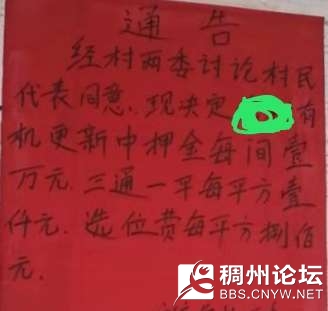 通告
经村两委讨论村民
代表同意.现决定 有
机更新中押金每间壹
万元.三通一平每平方壹
仟元.选位费每平方捌佰
元.
稠州论坛
BBS.CNYW.NET